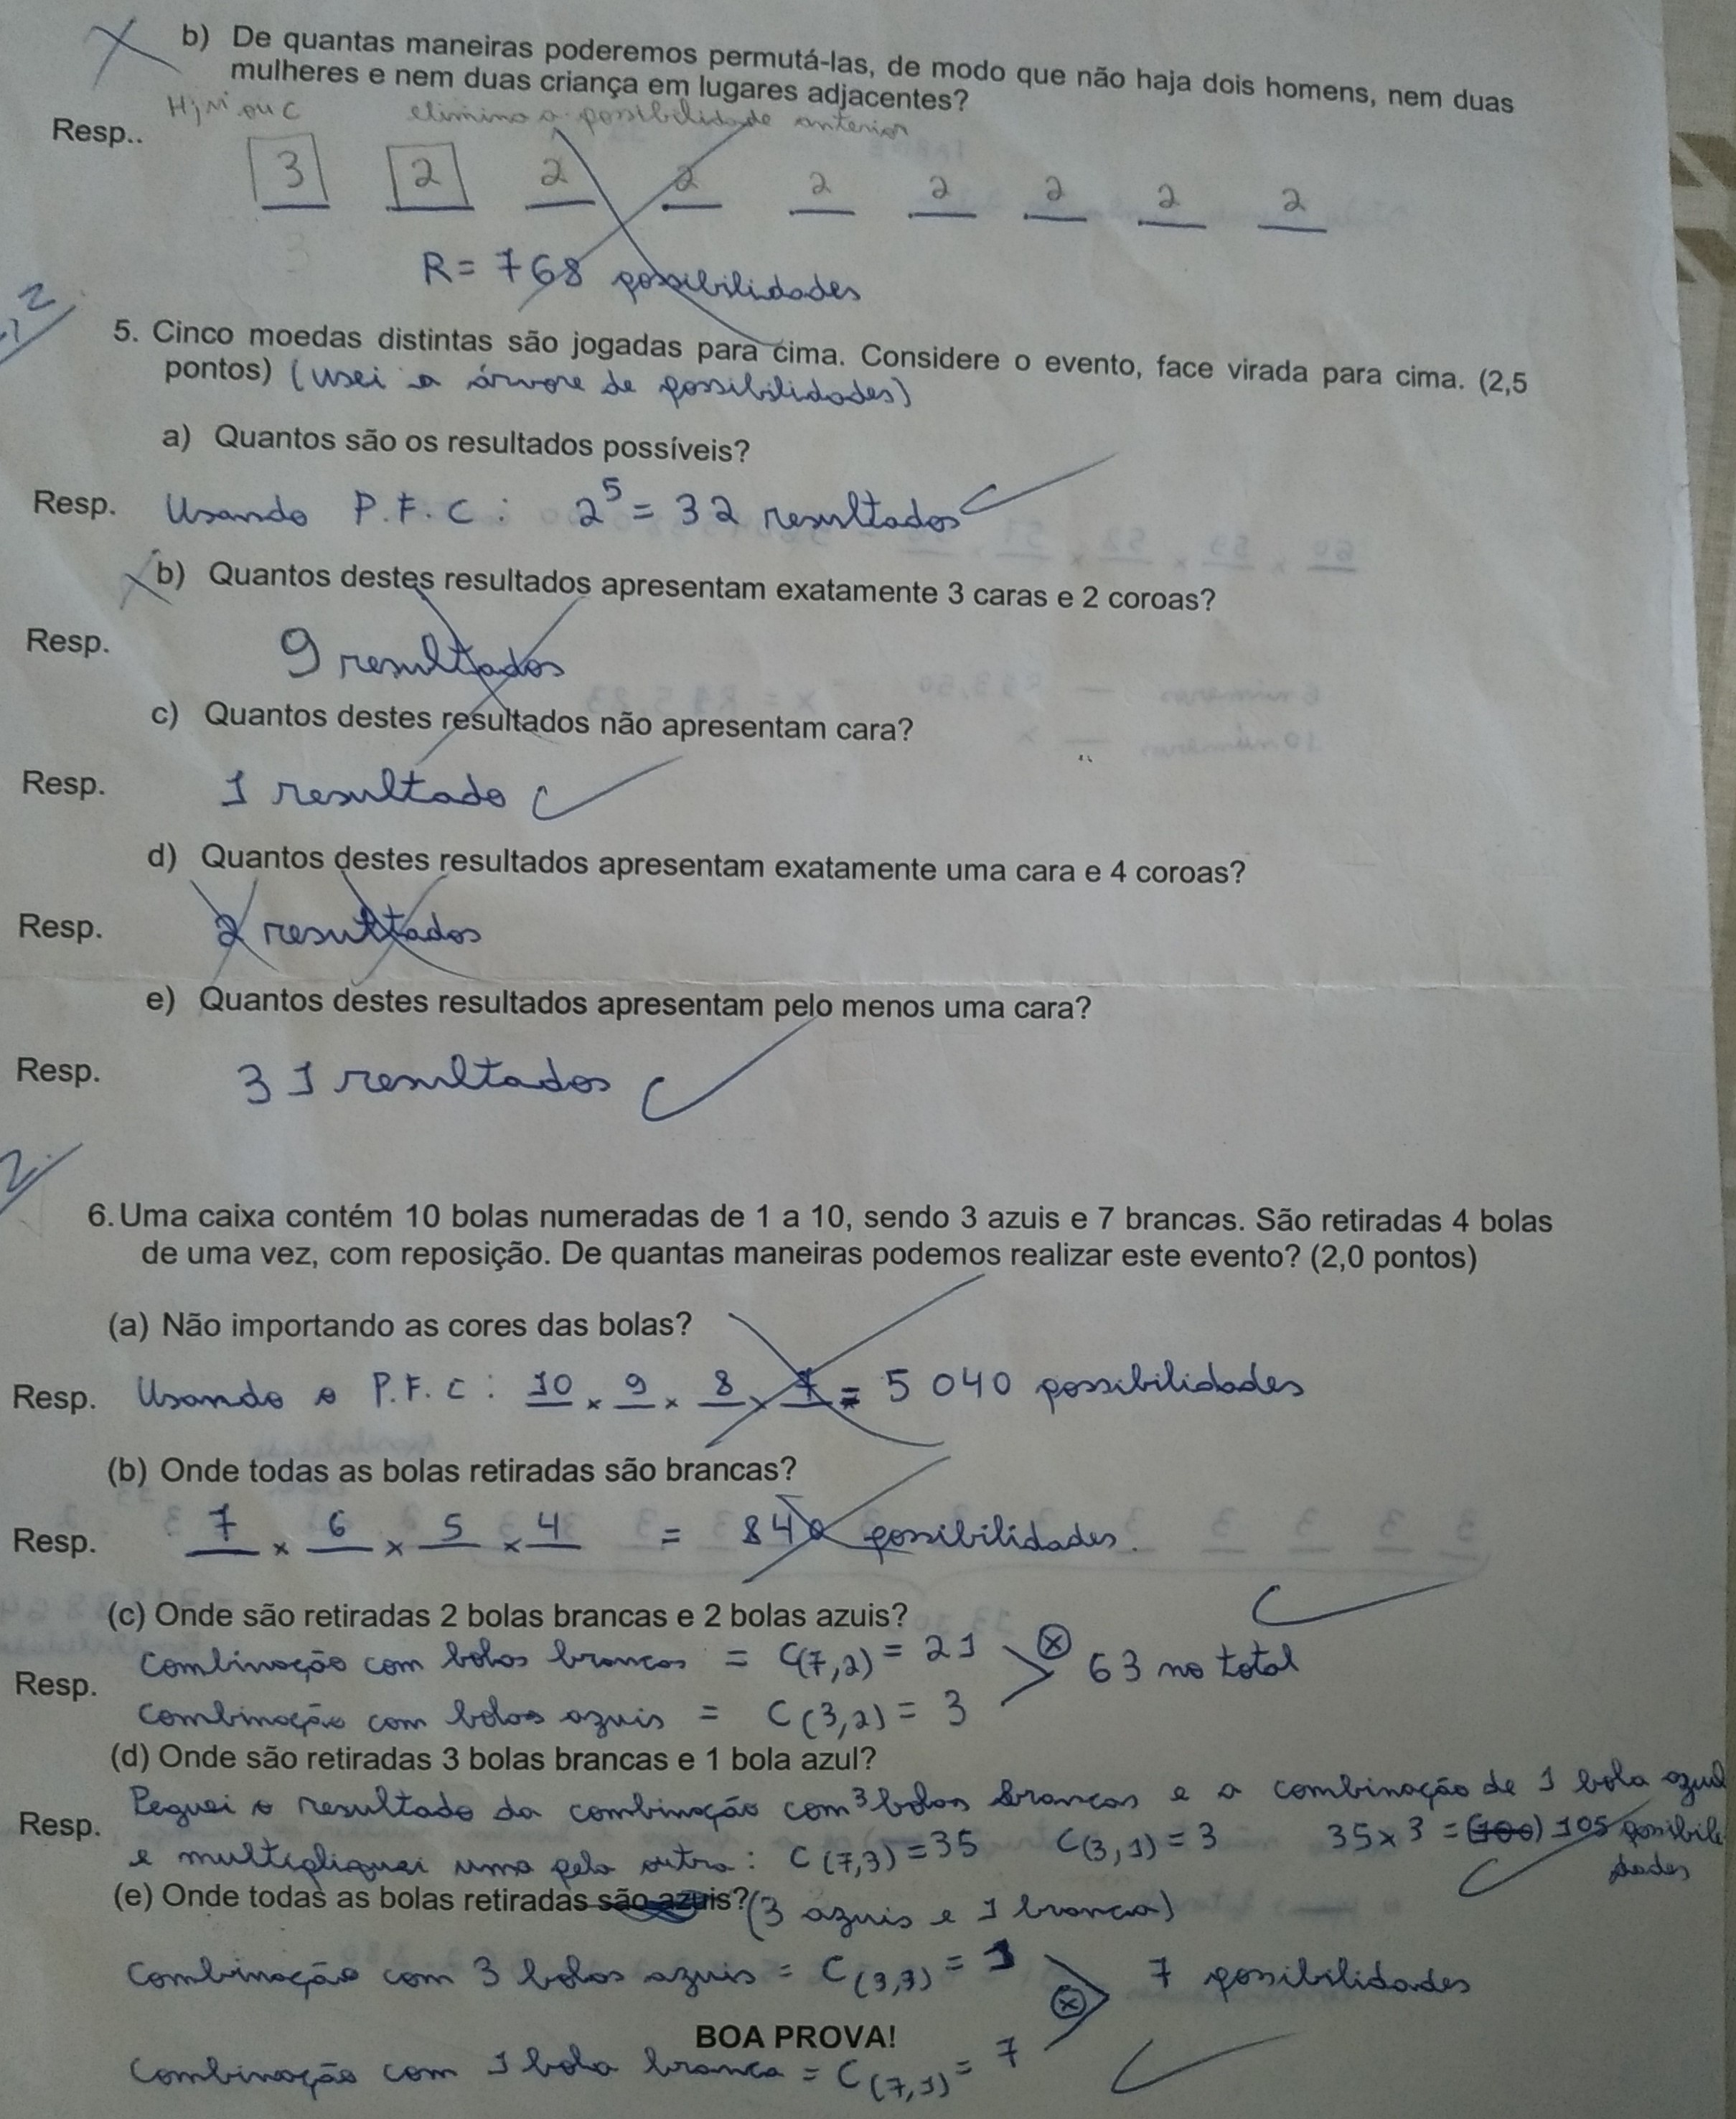 b) De quantas maneiras poderemos permutá-las, de modo que não haja dois homens, nem duas
mulheres e nem duas criança em lugares adjacentes?
H, M ou C elimino a possibilidade anterior
Resp..
3 2 2 2 2 2 2 2 2
R = 768 possibilidades
2
5. Cinco moedas distintas são jogadas para cima. Considere o evento, face virada para cima. (2,5
pontos) (usei a árvore de possibilidades)
a) Quantos são os resultados possíveis?
Resp. Usando P.F.C: 2⁵ = 32 resultados
b) Quantos destes resultados apresentam exatamente 3 caras e 2 coroas?
Resp. 9 resultados
c) Quantos destes resultados não apresentam cara?
Resp. 1 resultado
d) Quantos destes resultados apresentam exatamente uma cara e 4 coroas?
Resp. 2 resultados
e) Quantos destes resultados apresentam pelo menos uma cara?
Resp. 31 resultados
2
6. Uma caixa contém 10 bolas numeradas de 1 a 10, sendo 3 azuis e 7 brancas. São retiradas 4 bolas
de uma vez, com reposição. De quantas maneiras podemos realizar este evento? (2,0 pontos)
(a) Não importando as cores das bolas?
Resp. Usando o P.F.C: 10 x 9 x 8 x 7 = 5 040 possibilidades
(b) Onde todas as bolas retiradas são brancas?
Resp. 7 x 6 x 5 x 4 = 840 possibilidades.
(c) Onde são retiradas 2 bolas brancas e 2 bolas azuis?
Combinação com bolas brancas = C(7,2) = 21 x 63 no total
Resp.
Combinação com bolas azuis = C(3,2) = 3
(d) Onde são retiradas 3 bolas brancas e 1 bola azul?
Peguei o resultado da combinação com 3 bolas brancas e a combinação de 1 bola azul
Resp.
e multipliquei uma pela outra: C(7,3) = 35 C(3,1) = 3 35x3 = (100) 105 possibili
dades
(e) Onde todas as bolas retiradas são azuis? (3 azuis e 1 branca)
Combinação com 3 bolas azuis = C(3,3) = 1 x 7 possibilidades
BOA PROVA!
Combinação com 1 bola branca = C(7,1) = 7